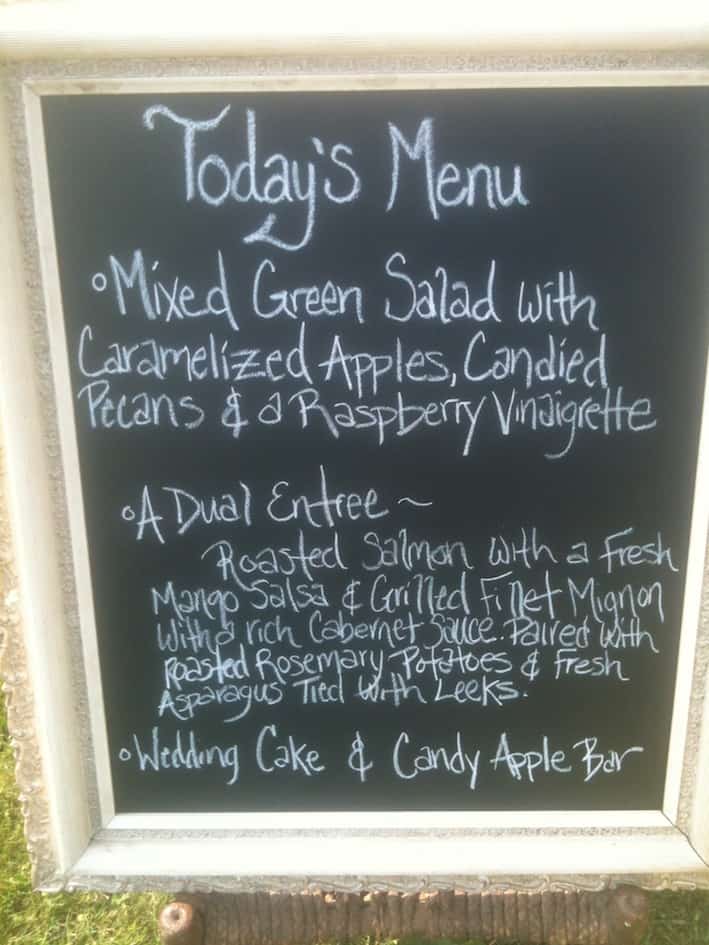 Today's Menu
°Mixed Green Salad with
Caramelized Apples, Candied
Pecans & a Raspberry Vinaigrette
°A Dual Entree ~
Roasted Salmon with a Fresh
Mango Salsa & Grilled Fillet Mignon
with a rich Cabernet Sauce. Paired with
Roasted Rosemary Potatoes & Fresh
Asparagus Tied With Leeks.
°Wedding Cake & Candy Apple Bar